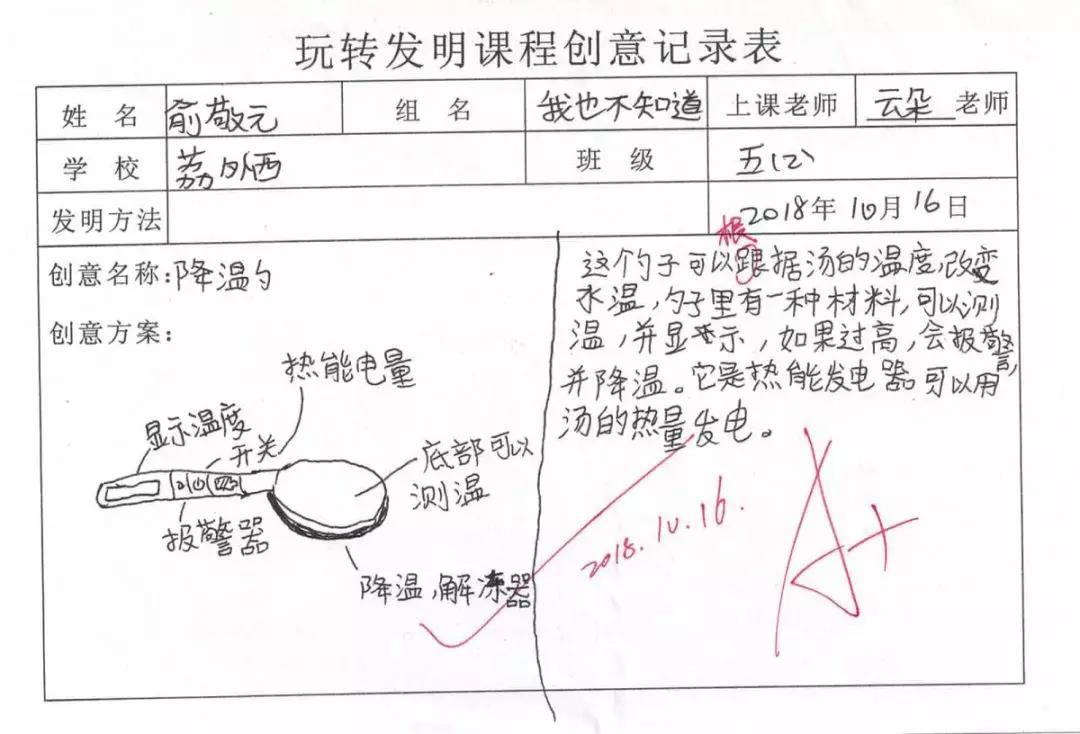 玩转发明课程创意记录表
姓 名 俞敬元 组 名 我也不知道 上课老师 云朵 老师
学 校 荔 班 级 五(二)
发明方法 2018年10月16日
创意名称:降温勺
创意方案:
热能电量
显示温度
开关
底部可以
测温
报警器
降温,解冻器
根
这个勺子可以跟据汤的温度,改变
水温,勺子里有一种材料,可以测
温,并显示,如果过高,会报警,
并降温。它是热能发电器可以用
汤的热量发电。
2018.10.16.
A+